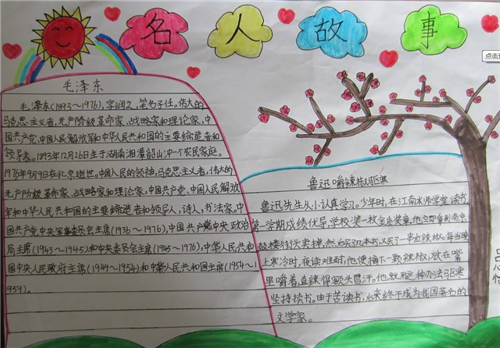 名人故事
毛泽东
毛泽东(1893~1976),字润之,笔名子任。伟大的
马克思主义者,无产阶级革命家、战略家和理论家,中
国共产党、中国人民解放军和中华人民共和国的主要缔造者和
领导者。1893年12月26日生于湖南湘潭韶山冲一个农民家庭。
1976年9月9日在北京逝世。中国人民的领袖,马克思主义者,伟大的
无产阶级革命家、战略家和理论家,中国共产党、中国人民解放
军和中华人民共和国的主要缔造者和领导人,诗人,书法家。中
国共产党中央军事委员会主席(1936~1976),中国共产党中央政治
局主席(1943~1945)和中央委员会主席(1945~1976),中华人民共和
国中央人民政府主席(1949~1954)和中华人民共和国主席(1954~1
959)。
鲁迅嚼辣椒驱寒
鲁迅先生从小认真学习。少年时,在江南水师学堂读书,
第一学期成绩优异,学校奖给他一枚金质奖章。他立即拿到南京
鼓楼街头卖掉,然后买了几本书,又买了一串红辣椒。每当晚
上寒冷时,夜读难耐,他便摘下一颗辣椒,放在嘴
里嚼着,直辣得额头冒汗。他就用这种办法驱寒
坚持读书。由于苦读书,后来终于成为我国著名的
文学家。
点击